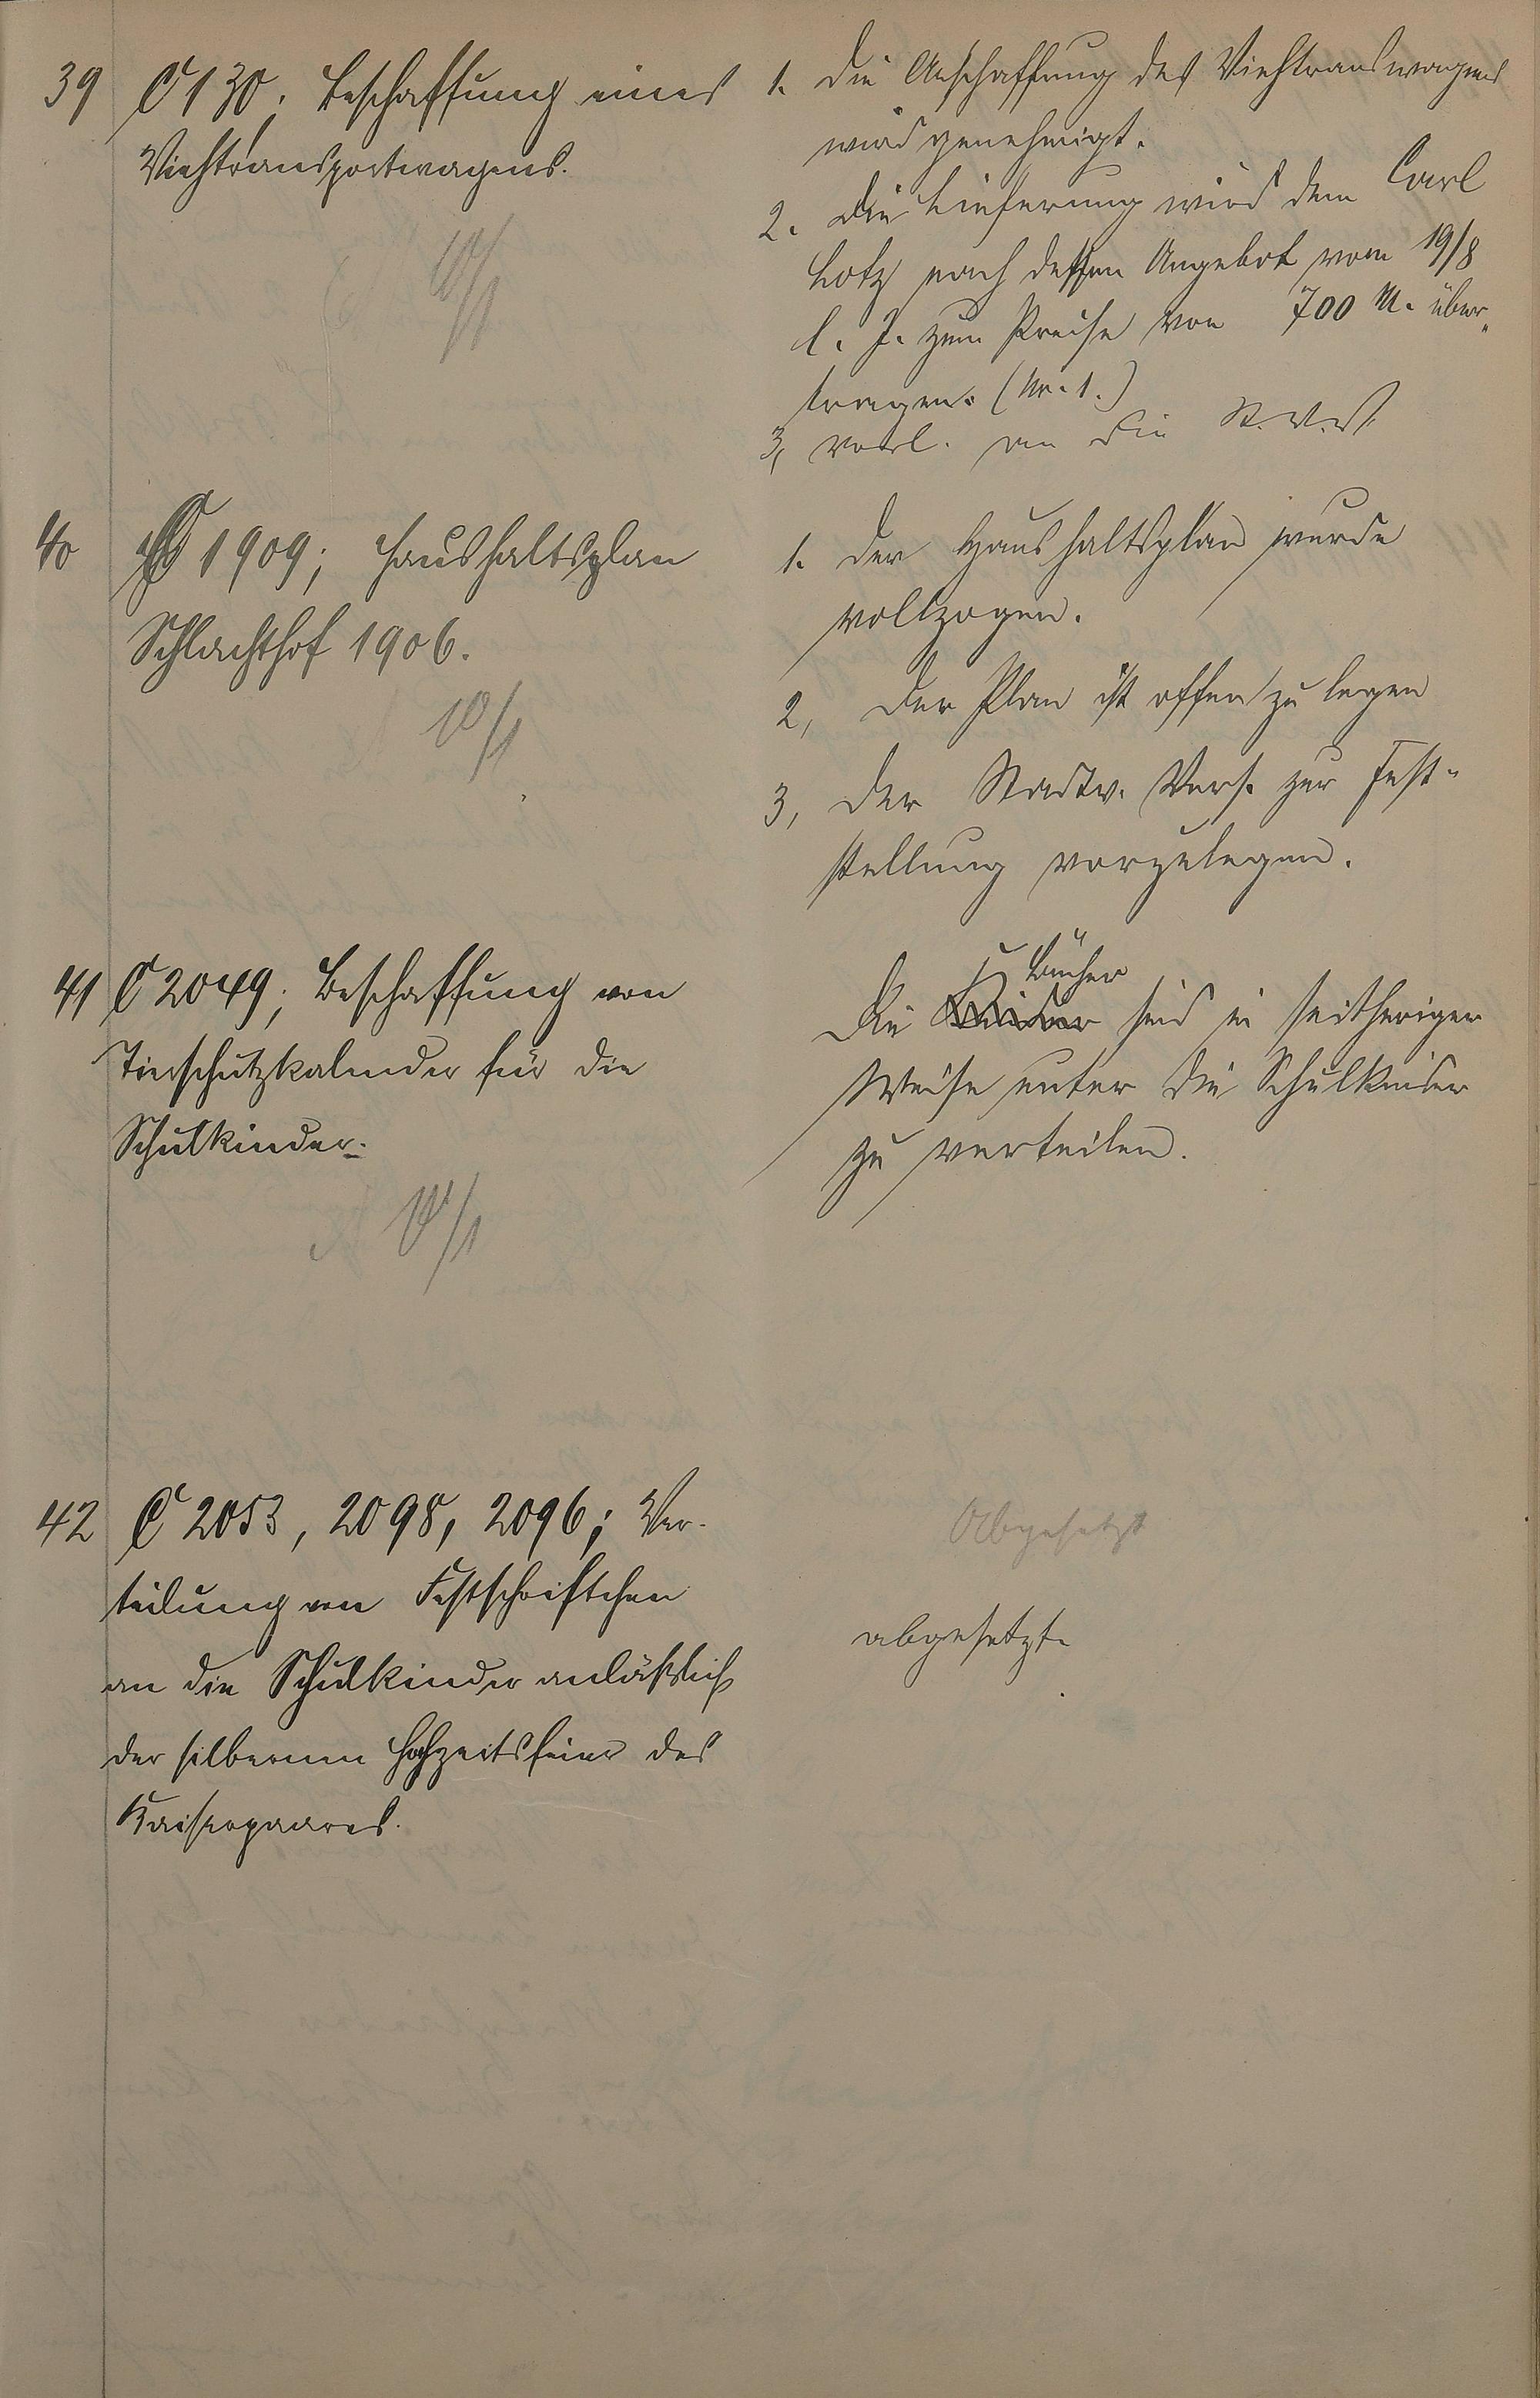 39 C 130. Beschaffung eines
Viehtransportwagens.
10/1
1. Die Anschaffung des Viehtranswagens
wird genehmigt.
2. Die Lieferung wird dem Carl
Lotz nach dessen Angebot vom 19/8
l. J. zum Preise von 700 M. über„
tragen. (Nr. 1.)
3, vorl. an die St. V. V.
40 C 1909; Haushaltsplan
Schlachthof 1906.
10/1
1. Der Haushaltsplan wurde
vollzogen.
2, Der Plan ist offen zu legen
3, Der Stadtv. Vers. zur Fest-
stellung vorzulegen.
41 C 2049; Beschaffung von
Tierschutzkalender für die
Schulkinder.
10/1
Bücher
Die Kinder sind in seitheriger
Weise unter die Schulkinder
zu verteilen.
42 C 2053, 2098, 2096; Ver-
teilung von Festschriftchen
an die Schulkinder anläßlich
der silbernen Hochzeitsfeier des
Kaiserpaares.
Abgesetzt
abgesetzt.